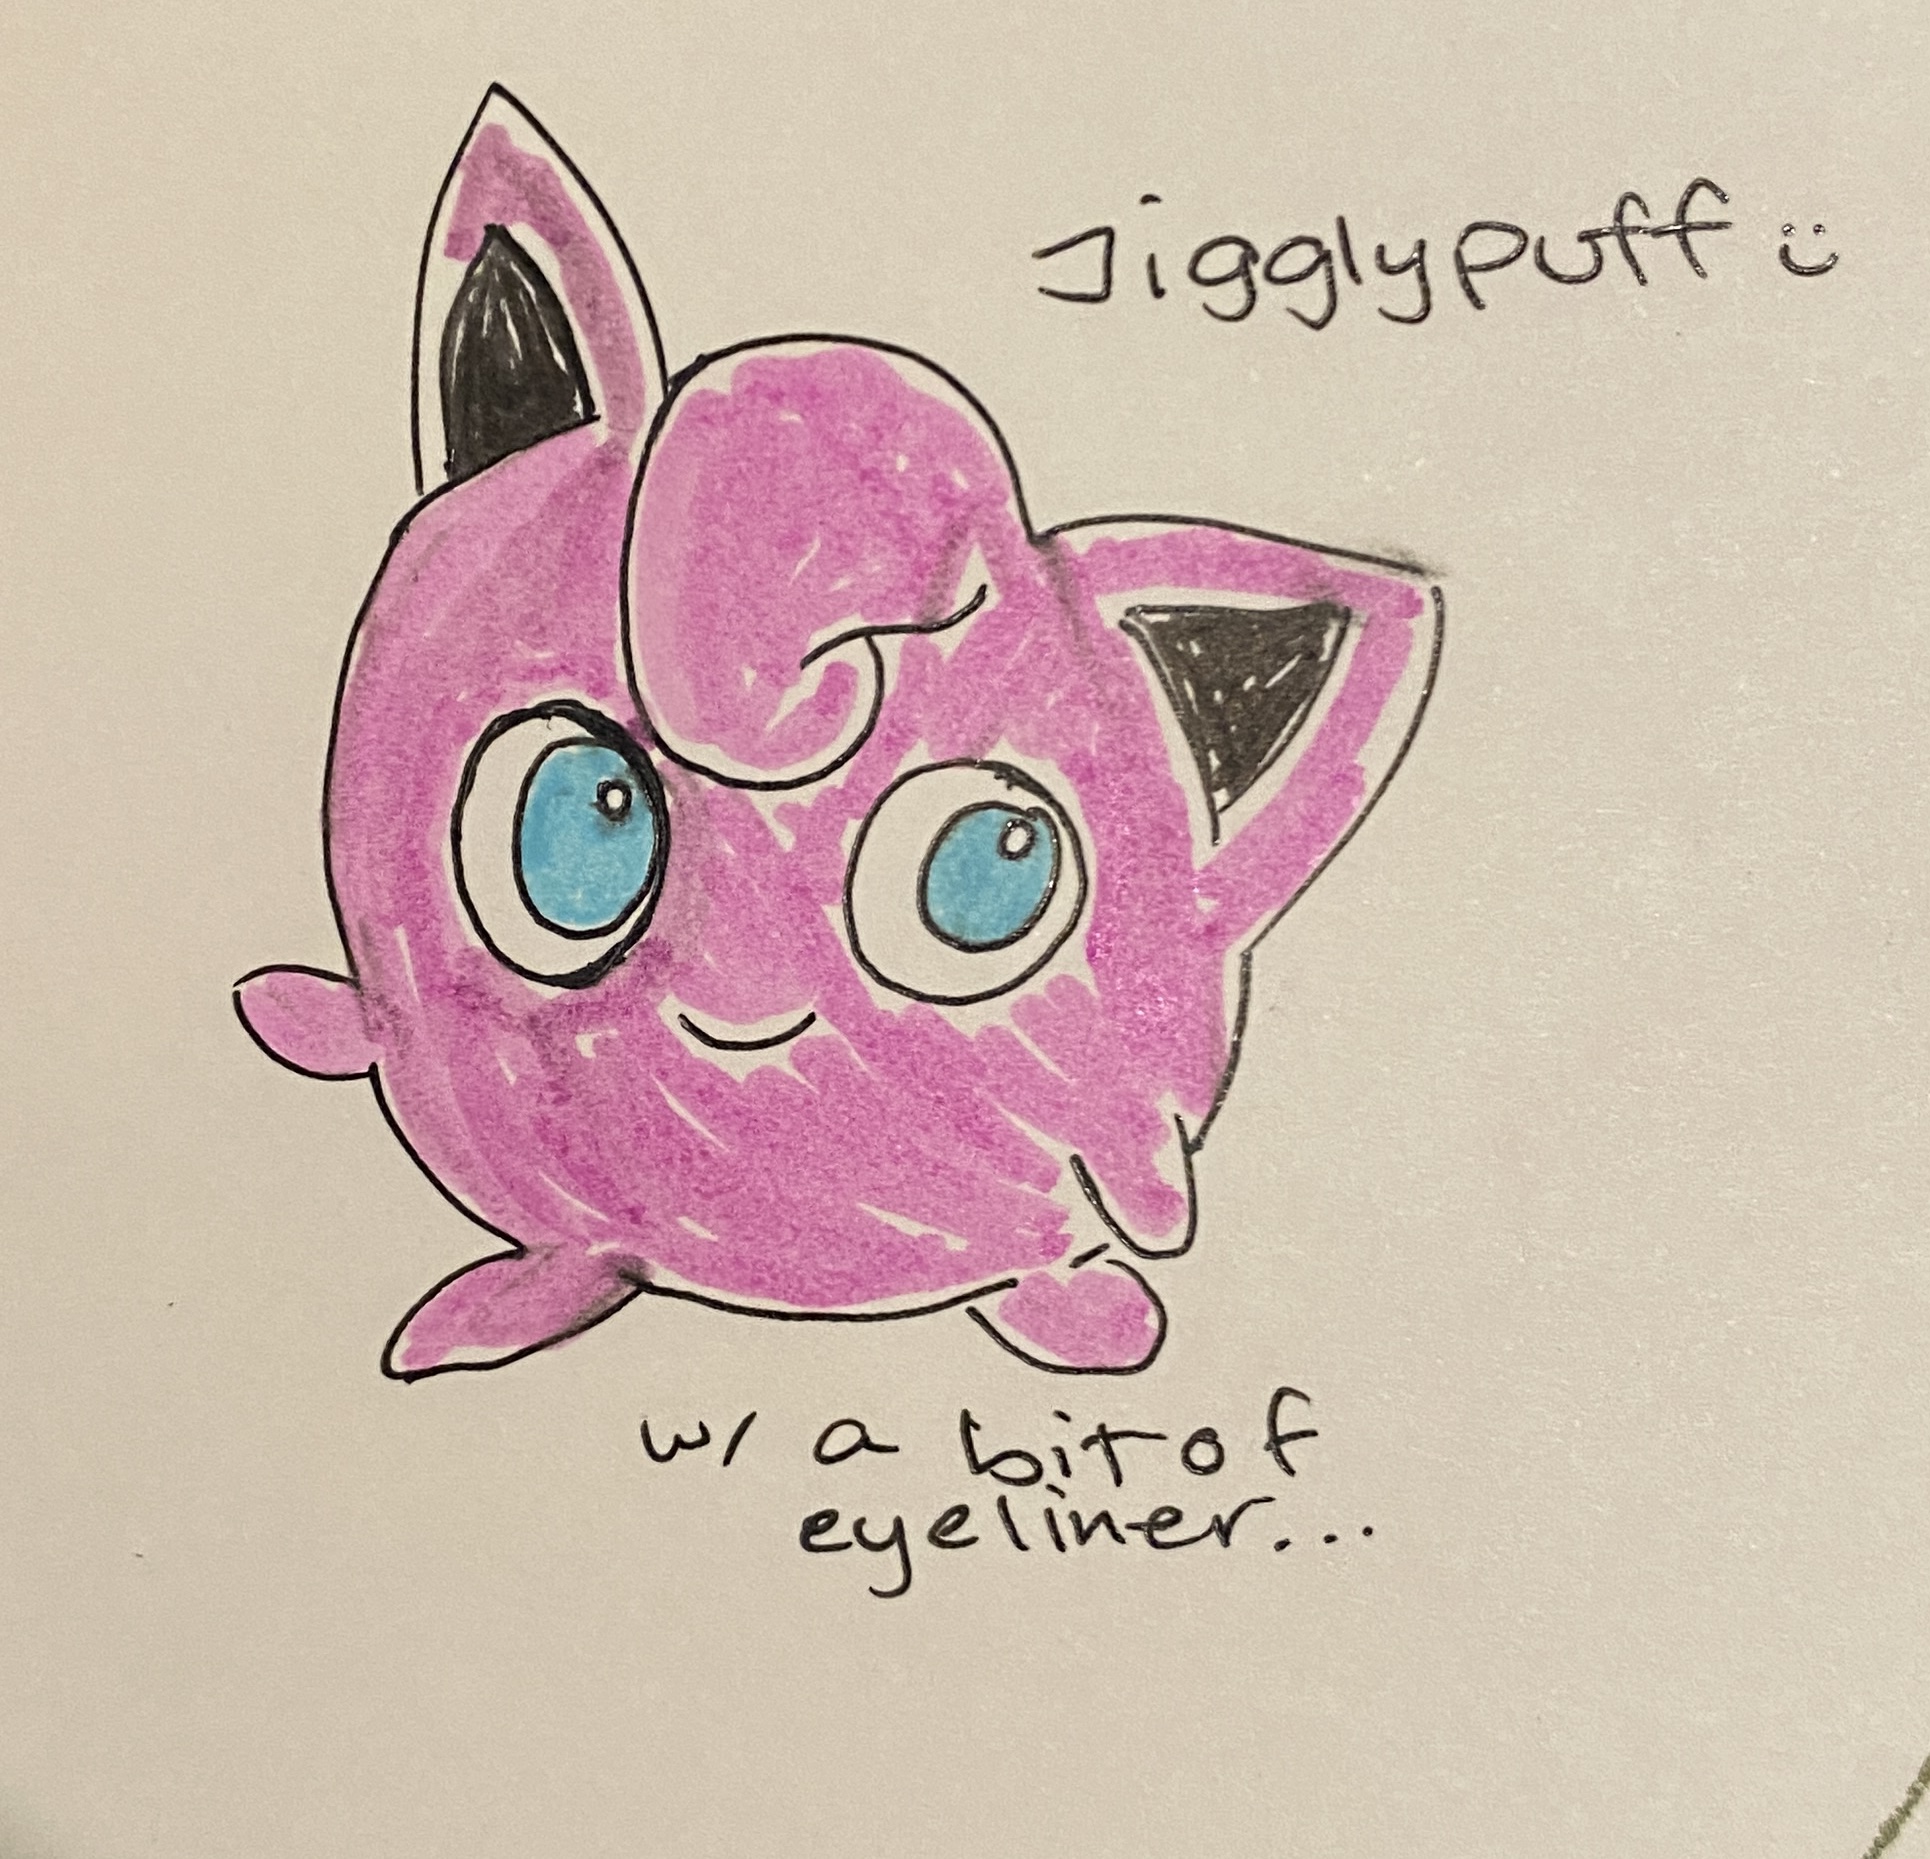 Jigglypuff
w/ a bit of
eyeliner...